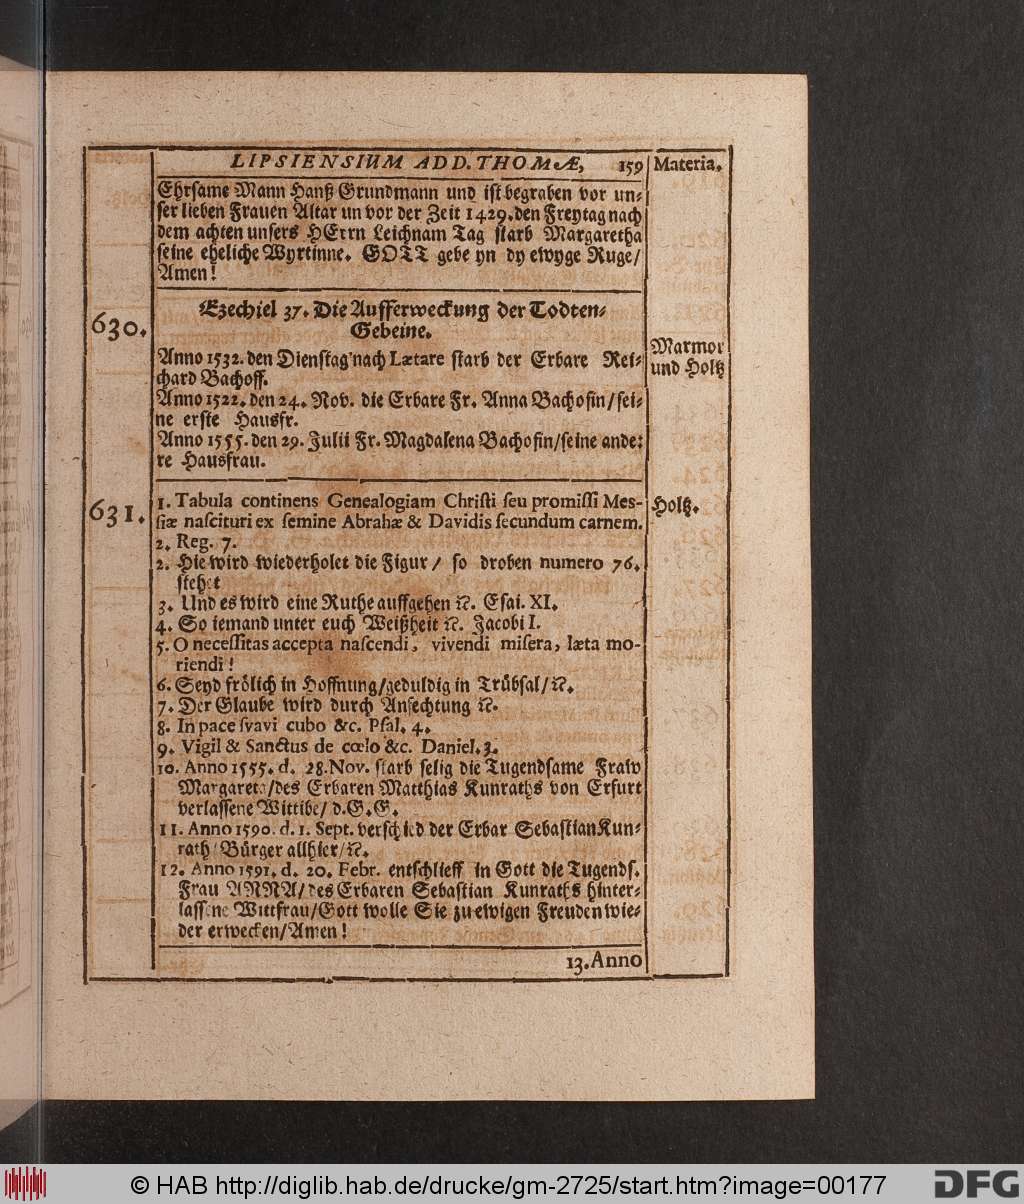 LIPSIENSIUM ADD. THOMÆ, 159 Materia.
Ehrsame Mann Hanß Grundmann und ist begraben vor un-
ser lieben Frauen Altar un vor der Zeit 1429. den Freytag nach
dem achten unsers HErrn Leichnam Tag starb Margaretha
seine eheliche Wyrtinne. GOTT gebe yn dy ewyge Ruge/
Amen!
630.
Ezechiel 37. Die Aufferweckung der Todten-
Gebeine.
Marmor
und Holtz
Anno 1532. den Dienstag nach Lætare starb der Erbare Rei-
chard Bachoff.
Anno 1522. den 24. Nov. die Erbare Fr. Anna Bachofin/ sei-
ne erste Hausfr.
Anno 1555. den 29. Julii Fr. Magdalena Bachofin/ seine ande-
re Hausfrau.
631.
Holtz.
1. Tabula continens Genealogiam Christi seu promissi Mes-
siæ nascituri ex semine Abrahæ & Davidis secundum carnem.
2. Reg. 7.
2. Hie wird wiederholet die Figur / so droben numero 76.
stehet
3. Und es wird eine Ruthe auffgehen ꝛc. Esai. XI.
4. So iemand unter euch Weißheit ꝛc. Jacobi I.
5. O necessitas accepta nascendi, vivendi misera, læta mo-
riendi!
6. Seyd frölich in Hoffnung/ geduldig in Trübsal/ ꝛc.
7. Der Glaube wird durch Ansechtung ꝛc.
8. In pace svavi cubo &c. Psal. 4.
9. Vigil & Sanctus de cœlo &c. Daniel. 3.
10. Anno 1555. d. 28. Nov. starb selig die Tugendsame Fraw
Margareta/ des Erbaren Matthias Kunraths von Erfurt
verlassene Wittibe/ d. G. G.
11. Anno 1590. d. 1. Sept. verschied der Erbar Sebastian Kun-
rath/ Bürger allhier/ ꝛc.
12. Anno 1591. d. 20. Febr. entschlieff in Gott die Tugends.
Frau ANNA/ des Erbaren Sebastian Kunraths hinter-
lassene Wittfrau/ Gott wolle Sie zu ewigen Freuden wie-
der erwecken/ Amen!
13. Anno
© HAB http://diglib.hab.de/drucke/gm-2725/start.htm?image=00177
DFG